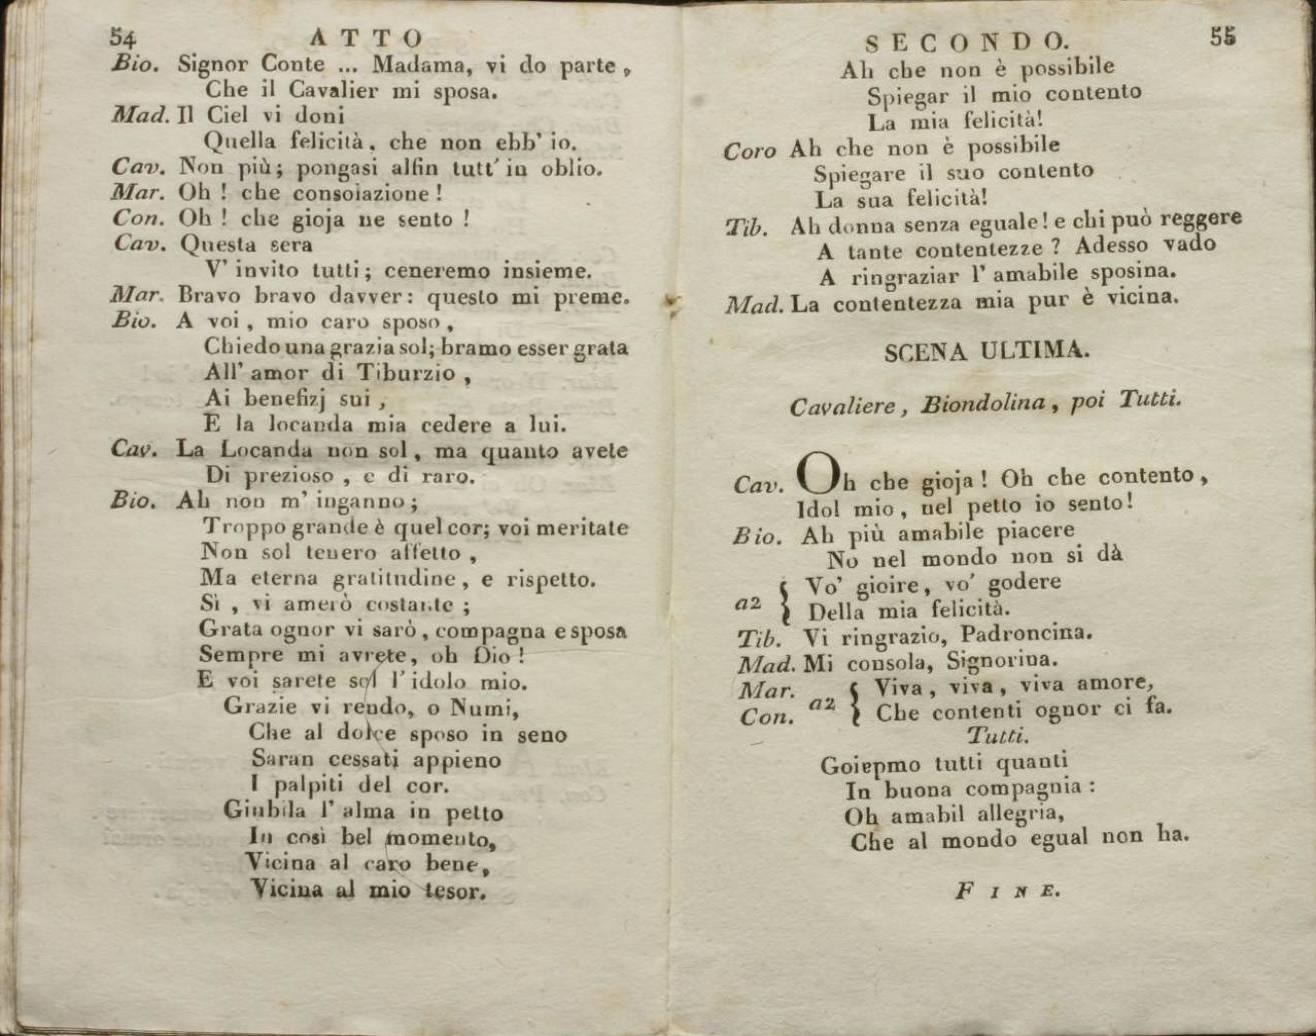 54 ATTO
Bio. Signor Conte ... Madama, vi do parte,
Che il Cavalier mi sposa.
Mad. Il Ciel vi doni
Quella felicità, che non ebb' io.
Cav. Non più; pongasi alfin tutt' in oblio.
Mar. Oh ! che consolazione !
Con. Oh ! che gioja ne sento !
Cav. Questa sera
V' invito tutti; ceneremo insieme.
Mar. Bravo bravo davver: questo mi preme.
Bio. A voi, mio caro sposo,
Chiedo una grazia sol; bramo esser grata
All' amor di Tiburzio,
Ai benefizj sui,
E la locanda mia cedere a lui.
Cav. La Locanda non sol, ma quanto avete
Di prezioso, e di raro.
Bio. Ah non m' inganno;
Troppo grande è quel cor; voi meritate
Non sol tenero affetto,
Ma eterna gratitudine, e rispetto.
Sì, vi amerò costante;
Grata ognor vi sarò, compagna e sposa
Sempre mi avrete, oh Dio !
E voi sarete sol l' idolo mio.
Grazie vi rendo, o Numi,
Che al dolce sposo in seno
Saran cessati appieno
I palpiti del cor.
Giubila l' alma in petto
In così bel momento,
Vicina al caro bene,
Vicina al mio tesor.
SECONDO. 55
Ah che non è possibile
Spiegar il mio contento
La mia felicità!
Coro Ah che non è possibile
Spiegare il suo contento
La sua felicità!
Tib. Ah donna senza eguale! e chi può reggere
A tante contentezze ? Adesso vado
A ringraziar l' amabile sposina.
Mad. La contentezza mia pur è vicina.
SCENA ULTIMA.
Cavaliere, Biondolina, poi Tutti.
Cav. Oh che gioja ! Oh che contento,
Idol mio, nel petto io sento!
Bio. Ah più amabile piacere
No nel mondo non si dà
a2 { Vo' gioire, vo' godere
Della mia felicità.
Tib. Vi ringrazio, Padroncina.
Mad. Mi consola, Signorina.
Mar. a2 { Viva, viva, viva amore,
Con. Che contenti ognor ci fa.
Tutti.
Goiepmo tutti quanti
In buona compagnia :
Oh amabil allegria,
Che al mondo egual non ha.
FINE.